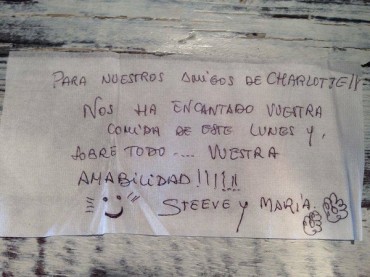 PARA NUESTROS AMIGOS DE CHARLOTTE!!
NOS HA ENCANTADO VUESTRA
COMIDA DE ESTE LUNES Y,
SOBRE TODO .... VUESTRA
AMABILIDAD!!!!!!
STEEVE Y MARÍA.